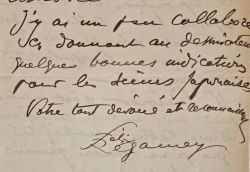 J'y ai un peu collaboré
en donnant au dessinateur
quelques bonnes indications
pour les scènes japonaises
Votre tout dévoué et reconnaissant
Félix
Régamey